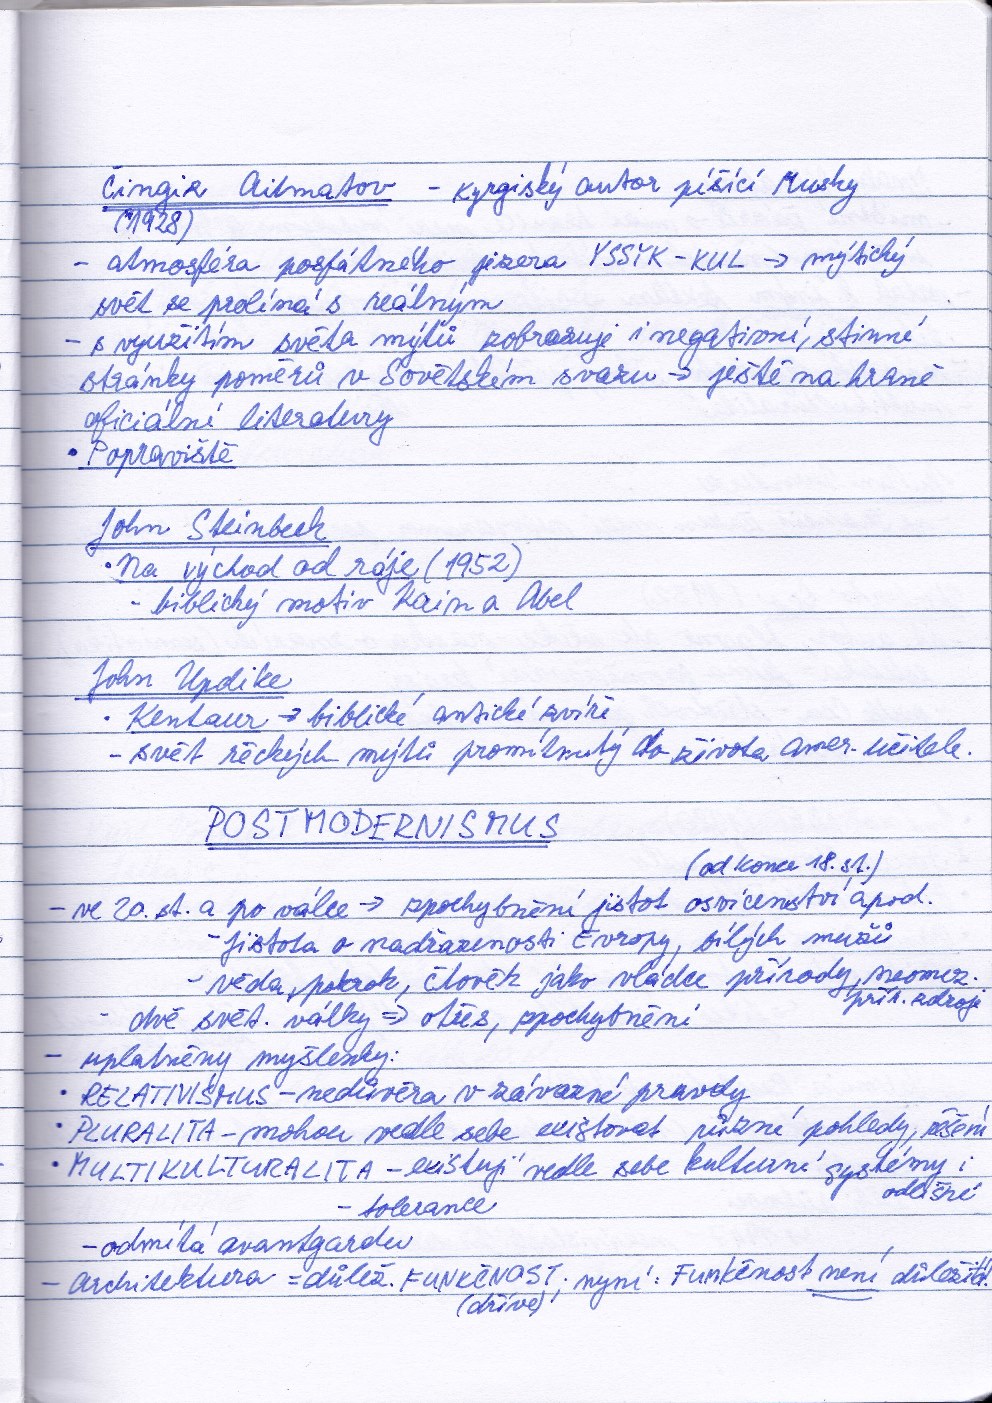 Čingiz Aitmatov - Kyrgiský autor píšící Rusky
(1928)
- atmosféra posfátného jezera YSSYK-KUL → mýtický
svět se prolíná s reálným
- s využitím světa mýtů zobrazuje i negativní, stinné
stránky poměrů v Sovětském svazu → ještě na hraně
oficiální literatury
• Popraviště
John Steinbeck
• Na východ od ráje (1952)
- biblický motiv Kain a Abel
John Updike
• Kentaur → biblické antické zvíře
- svět řeckých mýtů promítnutý do života amer. učitele.
POSTMODERNISMUS
(od konce 18. st.)
- ve 20. st. a po válce → zpochybnění jistot osvícenství apod.
- jistota o nadřazenosti Evropy, bílých mužů
- věda, pokrok, člověk jako vládce přírody, neomez.
přír. zdroje
- dvě svět. války ⇒ otřes, zpochybnění
- uplatněny myšlenky:
• RELATIVISMUS - nedůvěra v závazné pravdy
• PLURALITA - mohou vedle sebe existovat různé pohledy, řešení
• MULTIKULTURALITA - existují vedle sebe kulturní systémy i
odlišné
- tolerance
- odmítá avantgardu
- architektura = důlež. FUNKČNOST; nyní: Funkčnost není důležitá.
(dříve)